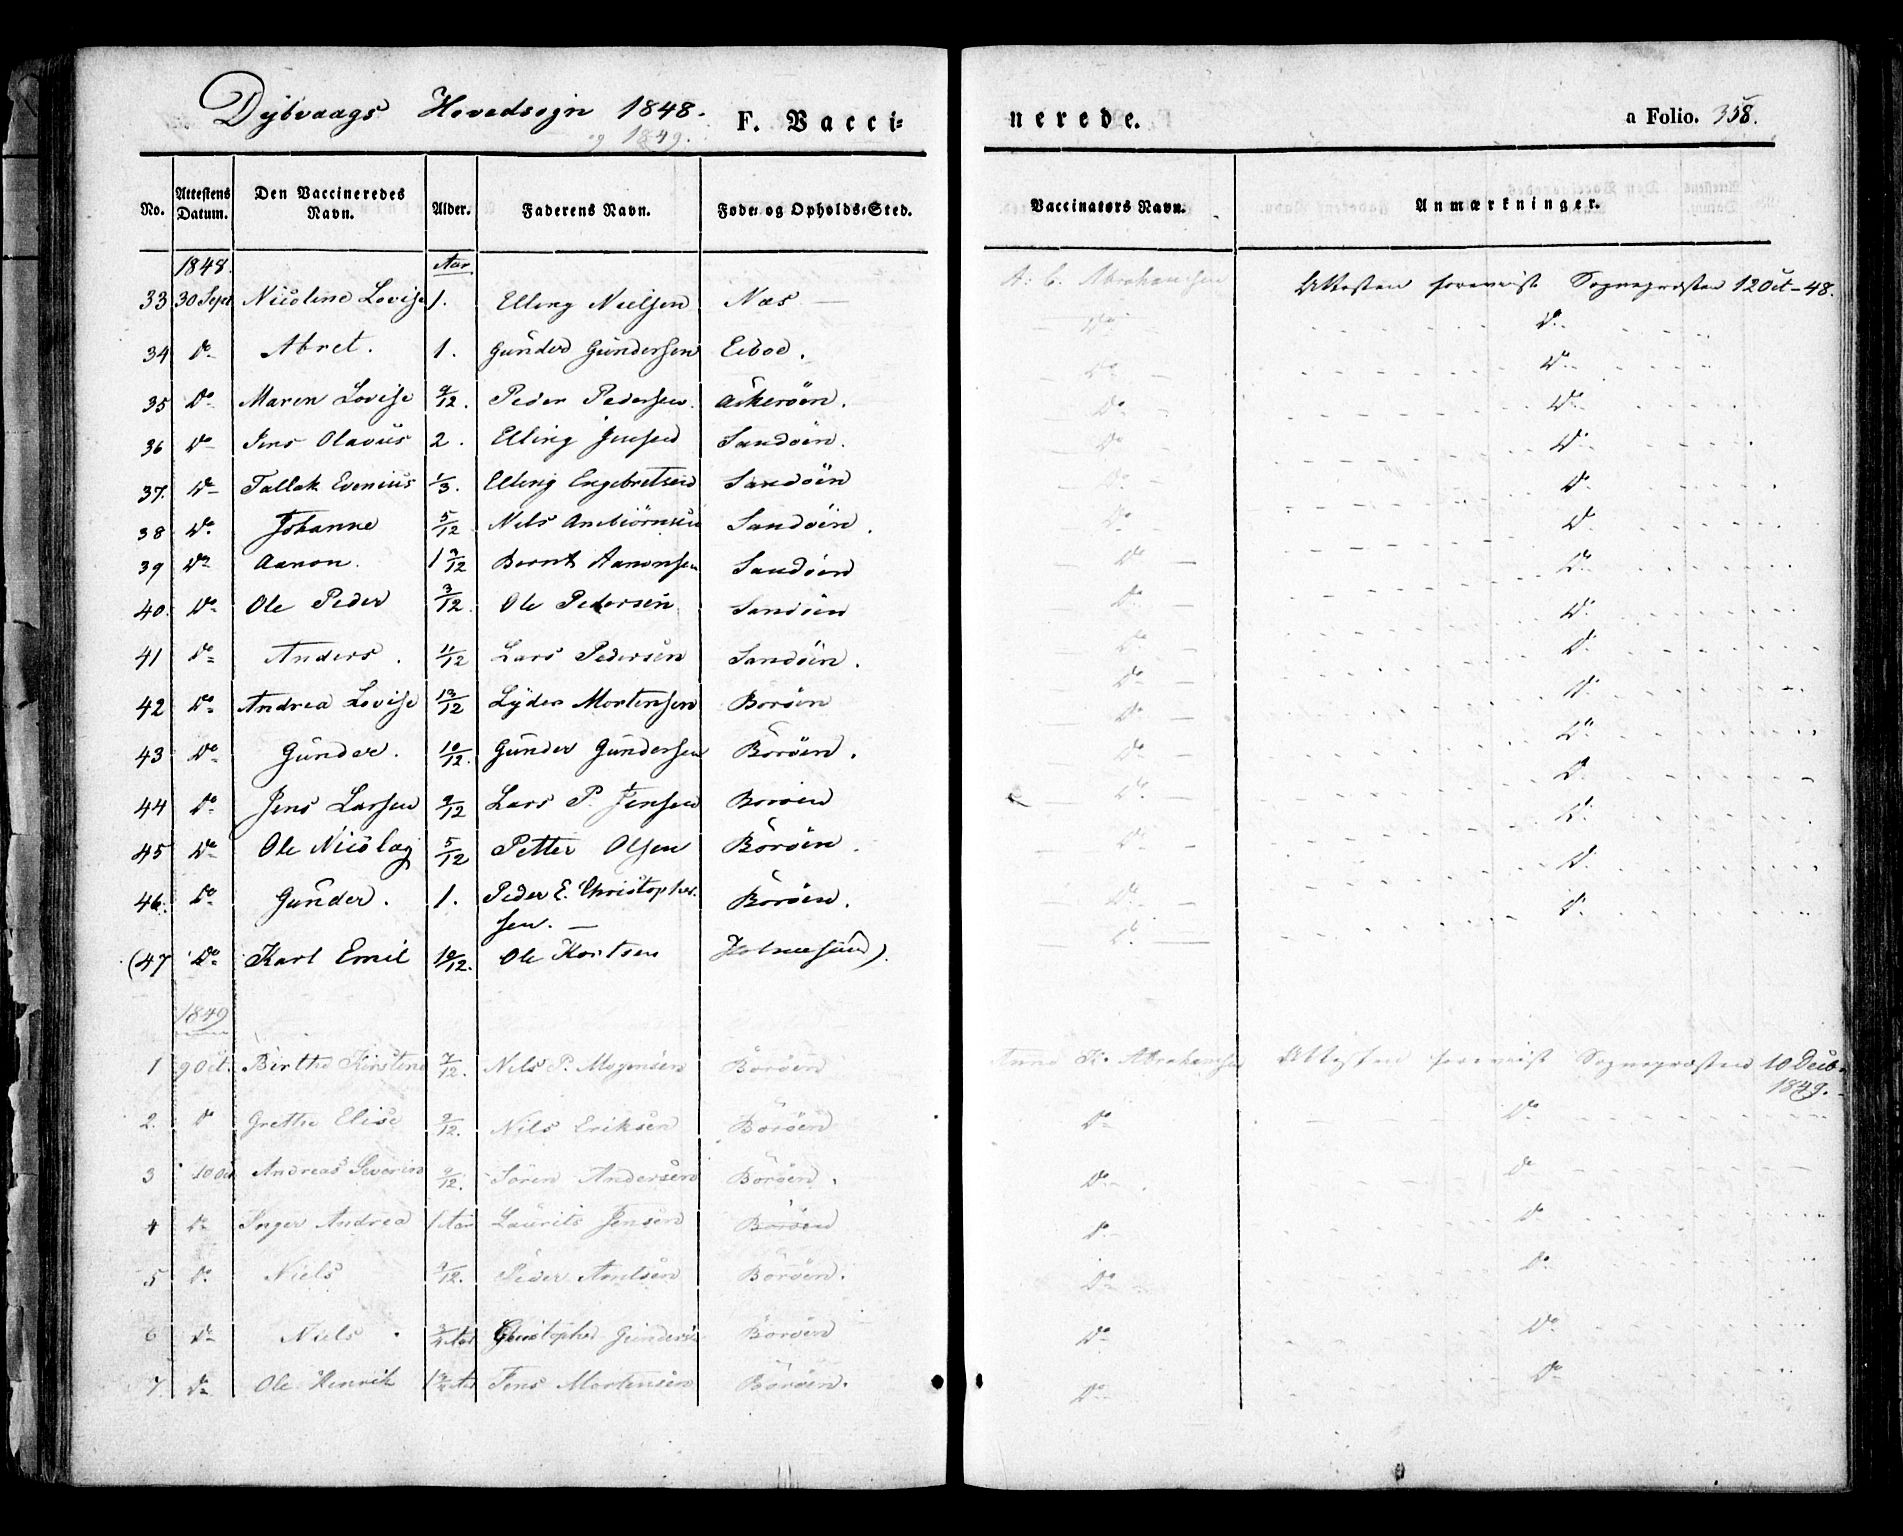 Dybvaags Hovedsogn 1848. F. Vacci= nerede. a Folio. 358.
og 1849.
No. Attestens Datum. Den Vaccineredes Navn. Alder. Faderens Navn. Føde= og Opholds=Sted. Vaccinatørs Navn. Anmærkninger.
1848. Aar
33 30 Sept Nicoline Lovise 1. Elling Nielsen Næs — A. C. Abrahamsen Attesten foreviist Sognepræsten 12 Oct - 48.
34 Do Abret. 1. Gunder Gundersen Eiboe. Do Do
35 Do Maren Lovise 9/12. Peder Pedersen. Askerøen. Do Do
36 Do Jens Olavus 2. Elling Jensen Sandøen. Do Do
37. Do Tallak Evenius 1/3. Elling Engebretsen Sandøen Do Do
38 Do Johanne 5/12 Nils Anbiørnsen Sandøen. Do Do
39 Do Aanon. 1 9/12 Bernt Aanonsen Sandøen Do Do
40. Do Ole Peder 3/12. Ole Pedersen Sandøen Do Do
41 Do Anders. 11/12 Lars Pedersen Sandøen. Do Do
42 Do Andrea Lovise 13/12 Lyder Mortensen Borøen Do Do
43 Do Gunder. 10/12. Gunder Gundersen Borøen. Do Do
44 Do Jens Larsen 9/12 Lars P. Jensen Borøen Do Do
45 Do Ole Nicolay 5/12 Petter Olsen Borøen. Do Do
46. Do Gunder. 1. Peder E. Christopher- Borøen. Do Do
sen. —
(47 Do Karl Emil 10/12. Ole Kortsen Holmesund). Do Do
1849
1 9 Oct. Birthe Kirstine 7/12. Nils P. Mogensen Borøen Anne K. Abrahamsen Attesten foreviist Sognepræsten 10 Decbr
1849.
2. Do Grethe Elise 9/12. Nils Eriksen Borøen Do Do
3 10 Oct Andreas Severin 9/12. Søren Andersen Borøen. Do Do
4 Do Inger Andrea 1 Aar Laurits Jensen Borøen Do Do
5 Do Niels 9/12. Peder Arntsen Borøen. Do Do
6 Do Niels. 3/4 Aar Christopher Gundersen Borøen Do Do
7. Do Ole Henrik Jens Mortensen Borøen. Do Do